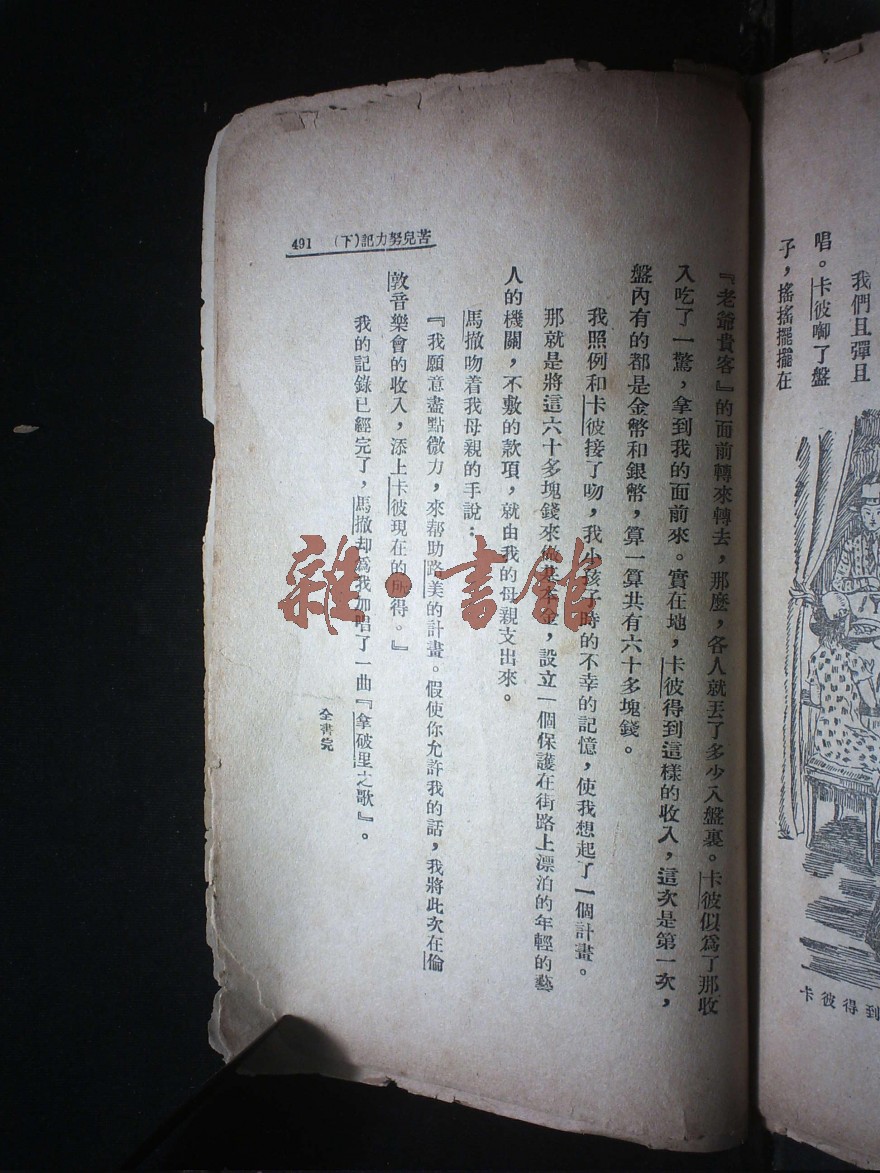 我們且彈且
唱。卡彼啣了盤
子，搖搖擺擺在
卡彼得到
491 苦兒努力記(下)
『老爺貴客』的面前轉來轉去，那麼，各人就丟了多少入盤裏。卡彼似爲了那收
入吃了一驚，拿到我的面前來。實在地，卡彼得到這樣的收入，這次是第一次，
盤內有的都是金幣和銀幣，算一算共有六十多塊錢。
我照例和卡彼接了吻，我小孩子時的不幸的記憶，使我想起了一個計畫。
那就是將這六十多塊錢來做基本金，設立一個保護在街路上漂泊的年輕的藝
人的機關，不敷的款項，就由我的母親支出來。
馬撤吻着我母親的手說：
『我願意盡點微力，來帮助路美的計畫。假使你允許我的話，我將此次在倫
敦音樂會的收入，添上卡彼現在的所得。』
我的記錄已經完了，馬撤却爲我加唱了一曲『拿破里之歌』。
全書完
雜·書館